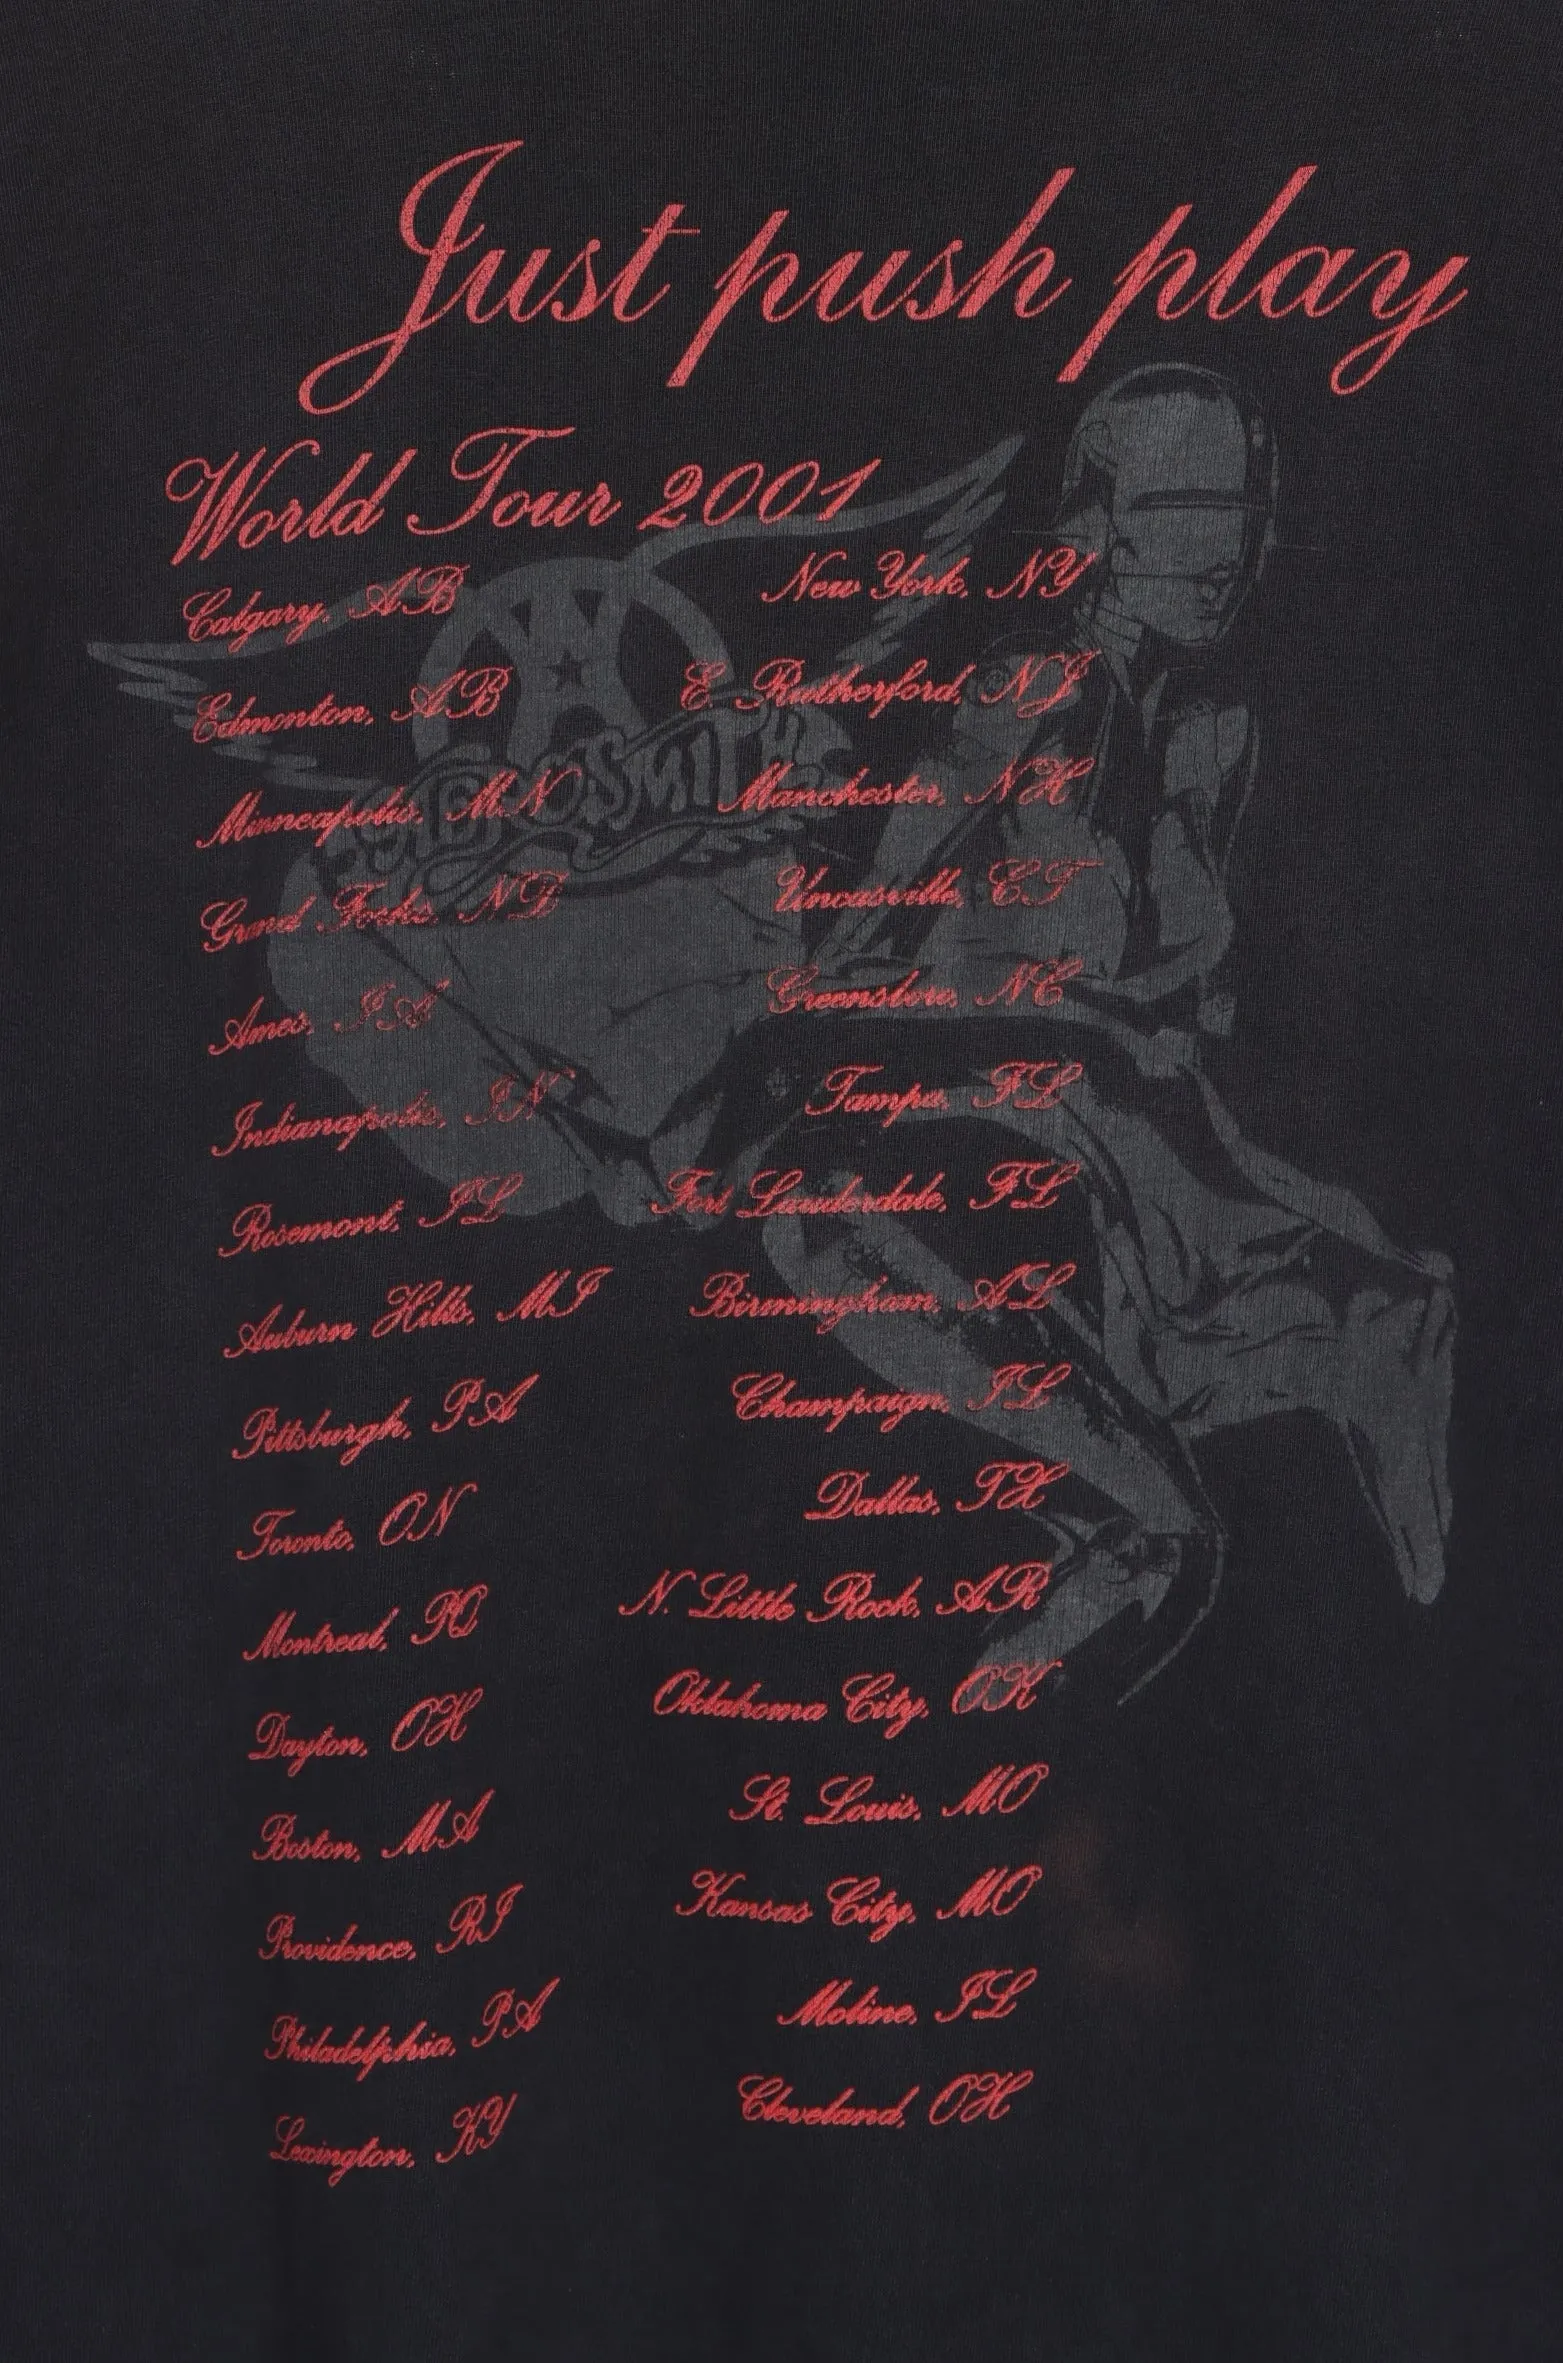 Just push play
World Tour 2001
Calgary, AB
Edmonton, AB
Minneapolis, MN
Grand Forks, ND
Ames, IA
Indianapolis, IN
Rosemont, IL
Auburn Hills, MI
Pittsburgh, PA
Toronto, ON
Montreal, PQ
Dayton, OH
Boston, MA
Providence, RI
Philadelphia, PA
Lexington, KY
New York, NY
E. Rutherford, NJ
Manchester, NH
Uncasville, CT
Greensboro, NC
Tampa, FL
Fort Lauderdale, FL
Birmingham, AL
Champaign, IL
Dallas, TX
N. Little Rock, AR
Oklahoma City, OK
St. Louis, MO
Kansas City, MO
Moline, IL
Cleveland, OH
A
AEROSMITH